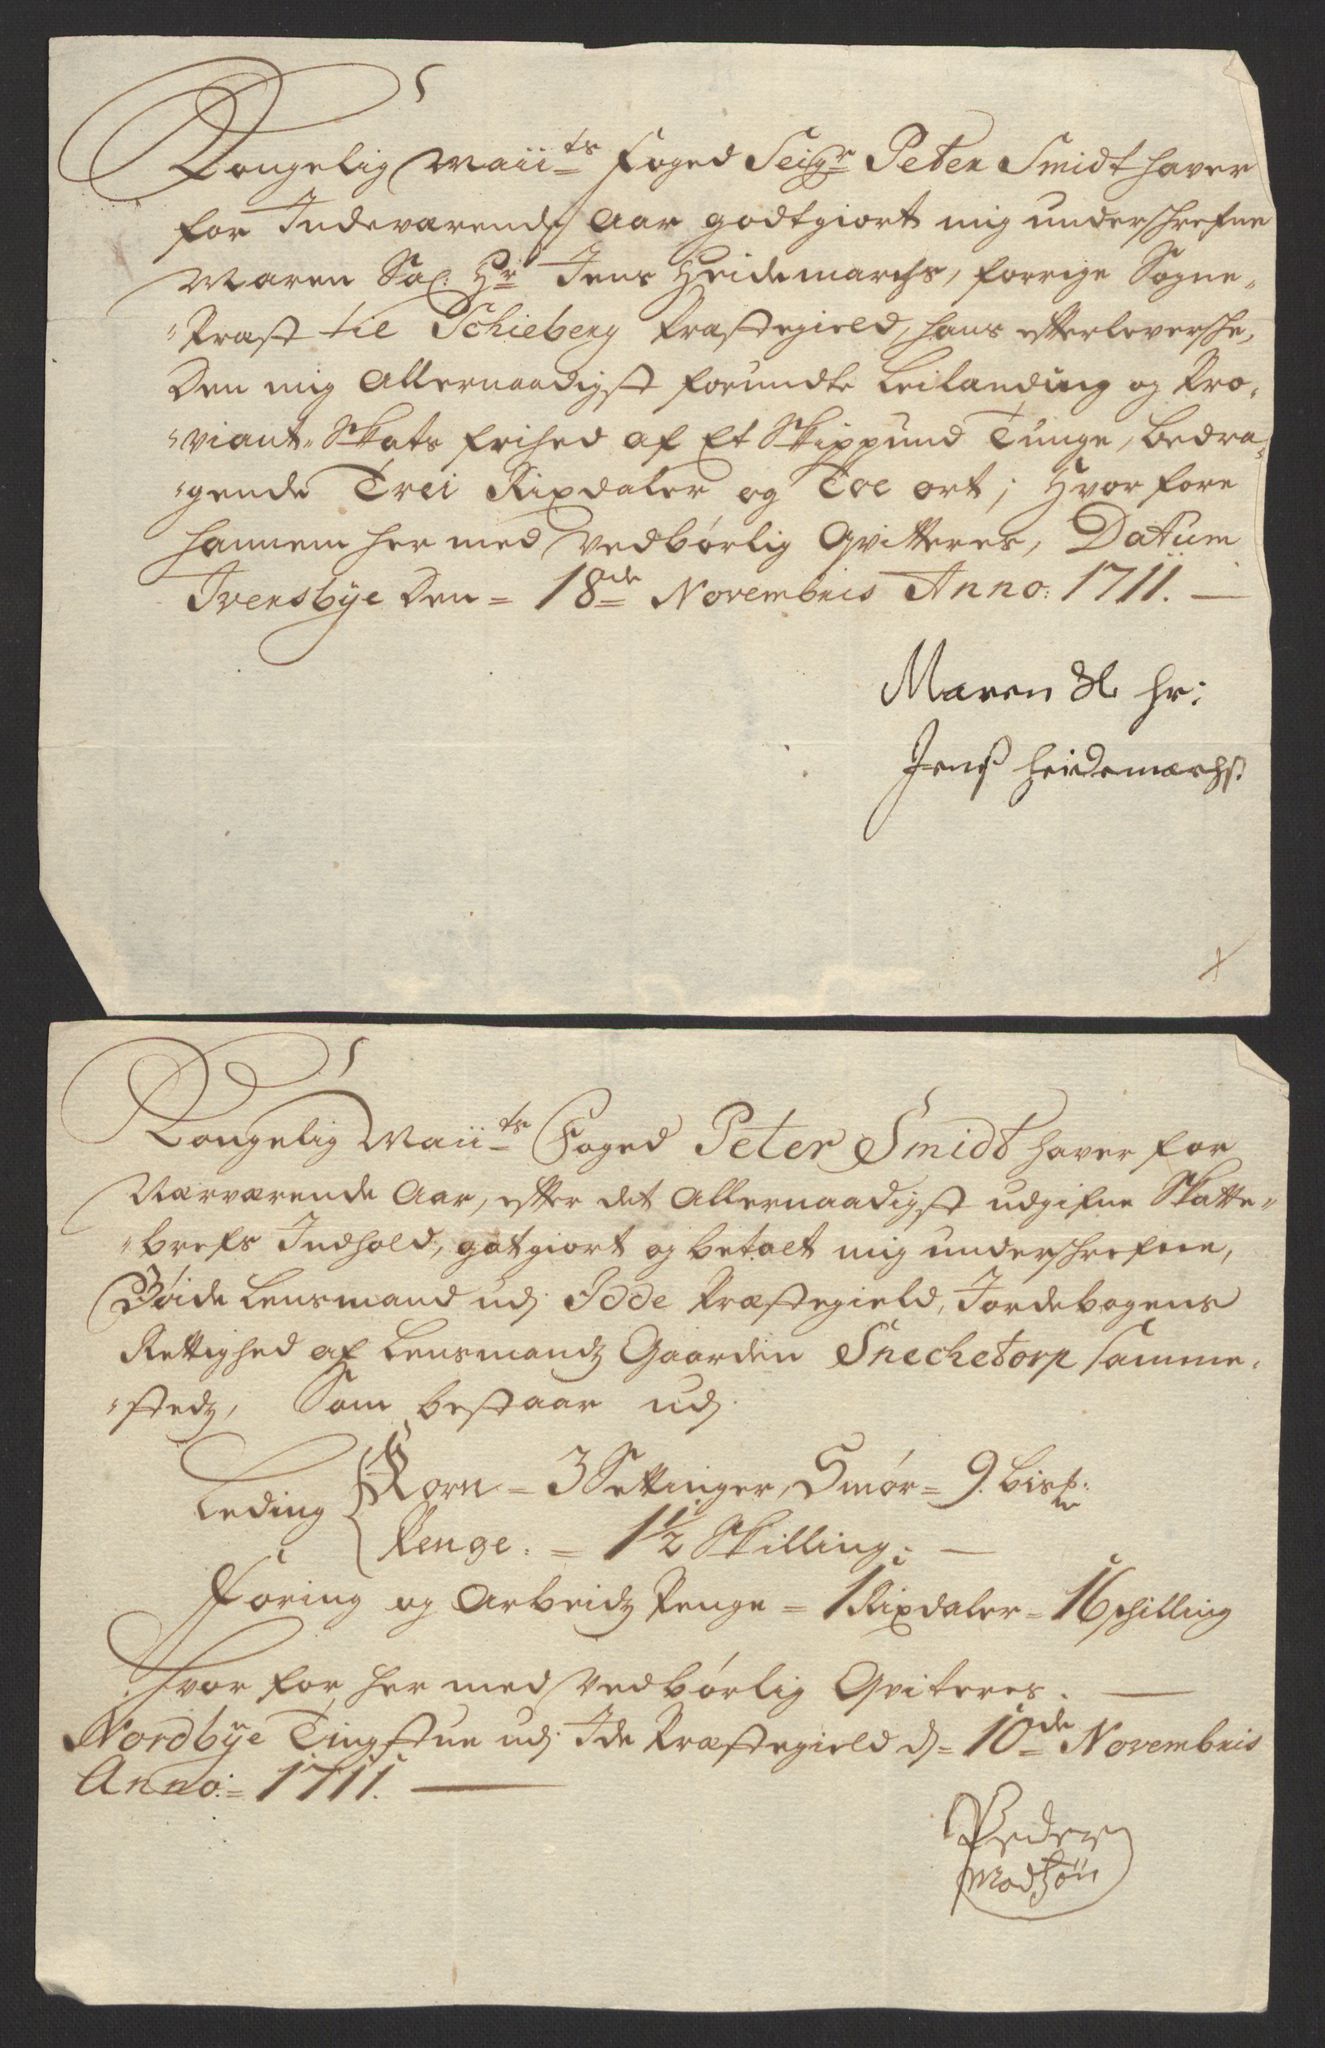 Kongelig Maii:ts Foged Seigr: Peter Smidt haver
for Indeværende Aar godtgiort mig underschrefne
Maren Sal: Hr: Jens Heidemarchs, forrige Sogne-
-Præst til Schieberg Præstegield, hans efterleversche,
Den mig Allernaadigst forundte Leilanding og Pro-
-viant-Skats frihed af Et Skippund Tunge, bedra-
-gende Trei Rixdaler og Toe ort; Hvorfore
hannem her med vedbørlig Qvitteres, Datum
Iversbye Den = 18de Novembris Anno: 1711. —
Maren Sl hr:
Jenß heidemarchs:
Kongelig Maii:ts Foged Peter Smidt haver for
Nærværende Aar, efter det Allernaadigst udgifne Skatte-
-brefs Indhold, gotgiort og betalt mig underschrefne,
Bøide Lensmand udj Idde Præstegield, Jordebogens
Rettighed af Lensmandz Gaarden Snechetorp samme-
-stedz, Som bestaar udj
Leding { Korn = 3 Settinger, Smør = 9. bisp:
Penge. = 1 1/2 Skilling: —
Føring og Arbeidz Penge = 1 Rixdaler = 16 schilling
Hvorfor her med vedbørlig Qviteres. —
Nordbye Tingstue udj Ide Præstegield d = 10de Novembris
Anno: = 1711. —
Peder
Madtzøn